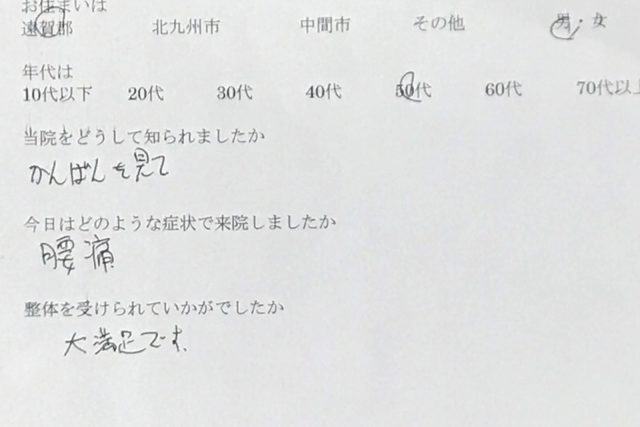 お住まいは
遠賀郡 北九州市 中間市 その他 男・女
年代は
10代以下 20代 30代 40代 50代 60代 70代以上
当院をどうして知られましたか
かんばんを見て
今日はどのような症状で来院しましたか
腰痛
整体を受けられていかがでしたか
大満足です。